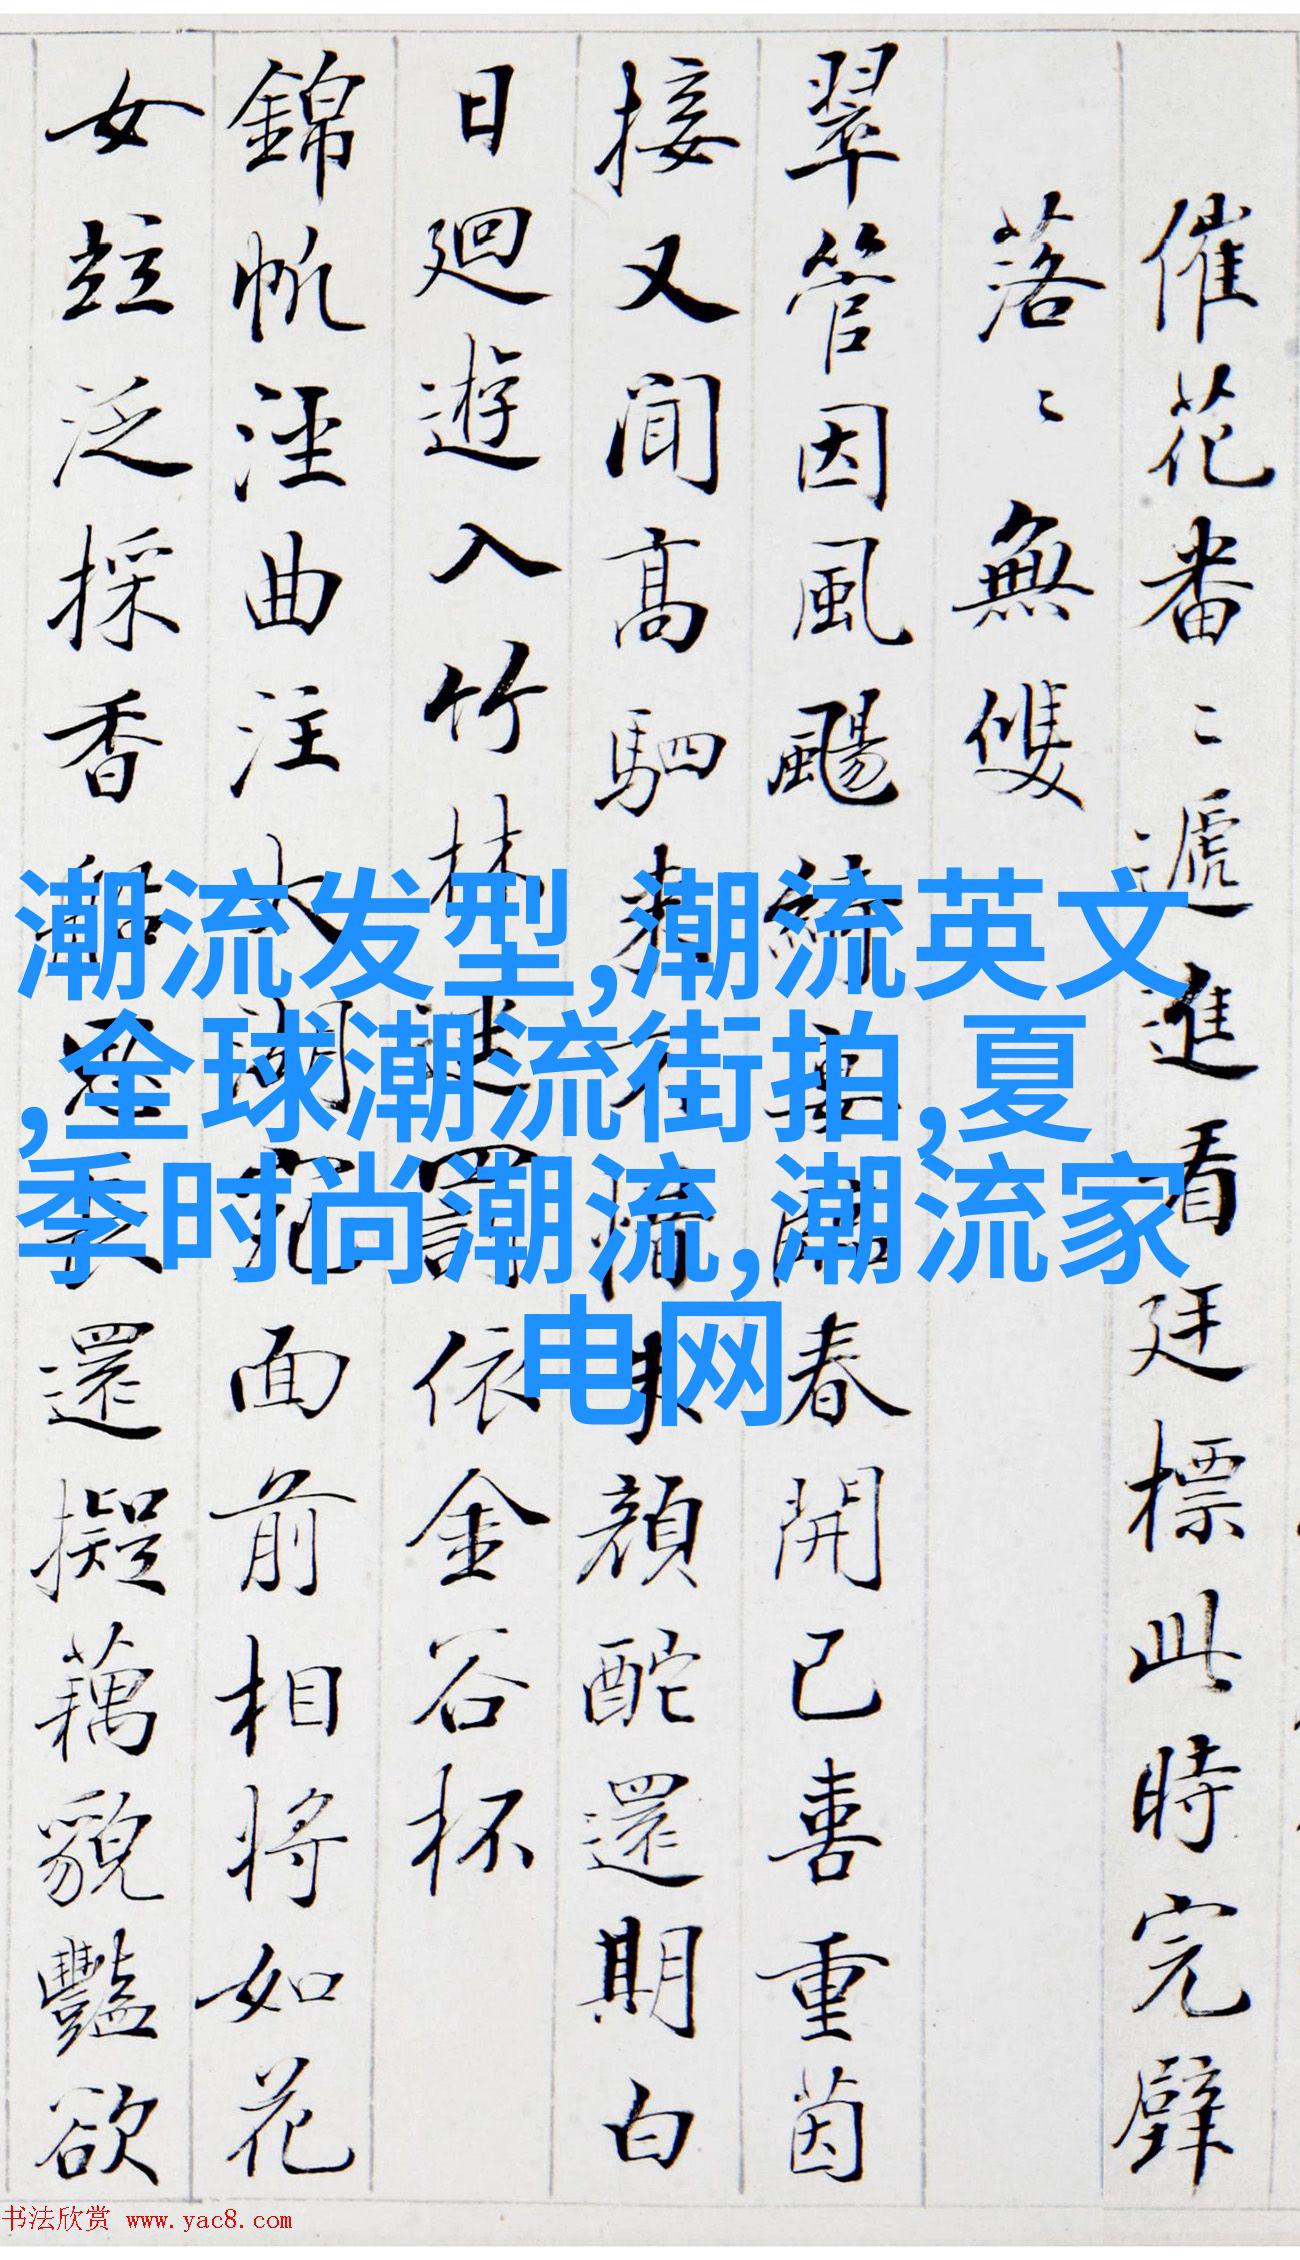 催花番〻遞進看廷標此時完璧
落〻無雙
翠管因風颺綺春開已喜重茵
接又聞高駟顏酡還期白
日迴遊入竹林罰依金谷杯
錦帆淫曲注太湖面前相將如花
女竝泛採香還擬藕貌豔欲
潮流发型,潮流英文
,全球潮流街拍,夏
季时尚潮流,潮流家
电网
书法欣赏 www.yac8.com